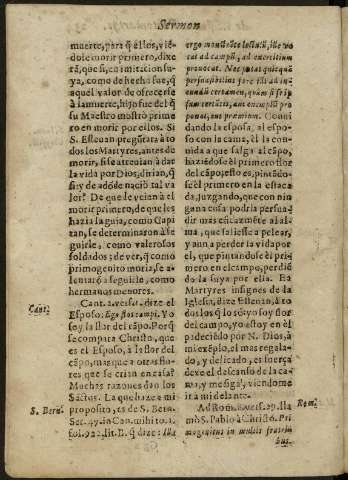 Sermon
muerte, para q̃ ellos, viē-
dole morir primero, dixe
rã, que si, a su imitacion su-
ya, como de hecho fue, q̃
aquel valor de ofrecerse
à la muerte, hijo fue del q̃
su Maestro mostrò prime-
ro en morir por ellos. Si
S. Esteuan pregũtara à to
dos los Martyres, antes de
morir, si se atreuian à dar
la vida por Dios, dirian, q̃
si: y de adõde naciò tal va
lor? De que le veian à el
morir primero, de que les
hazia la guia, como Capi
tan, se determinaron à se
guirle, como valerosos
soldados: de ver, q̃ como
primogenito moria, se a-
lentarõ à seguirle, como
hermanos menores.
Cant. 2. vers. 1. dize el
Esposo: Ego flos campi. Yo
soy la flor del cãpo. Porq̃
se compara Christo, que
es el Esposo, à la flor del
cãpo, mas que à otras flo-
res que se crian en casa?
Muchas razones dan los
Sãctos. La que haze à mi
proposito, es de S. Bern.
Ser. 47. in Can. mihi to. 1.
fol. 922. lit. B. q̃ dize: Illa
Cant.
S. Bern.
ergo monstrãte lectulũ, ille vo
cat ad campũ, ad exercitium
prouocat. Nec putat quicquã
persuasibilius fore illi ad in
eundũ certamen, quàm si se ip
sum certãtis, aut exemplũ pro
ponat, aut præmium. Combi
dando la esposa, al espo-
so con la cama, èl la com-
bida a que salga al cãpo,
haziẽdose èl primero flor
del cãpo, esto es, pintãdo
se èl primero en la estaca
da, juzgando, que con nin
guna cosa podria persua-
dir mas eficazmẽte al al-
ma, que saliesse a pelear,
y aun a perder la vida por
el, que pintandose èl pri-
mero en el campo, perdiẽ
do la suya por ella. Ea
Martyres insignes de la
Iglesia, dize Esteuan, à to
dos los q̃ lo sois, yo soy flor
del campo, yo estoy en èl
padeciẽdo por N. Dios, à
mi exẽplo, el mas regala-
do, y delicado, es fuerça
dexe el descanso de la ca-
ma, y me siga, viendome
ir à mi delante.
Ad Rom. 8. vers. 29. lla
mò S. Pablo à Christo. Pri
mogenitus in multis fratri
bus.
Rom.